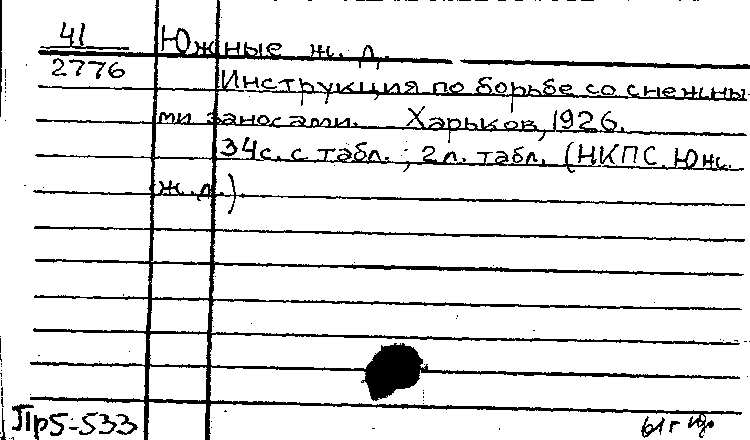 41 Южные ж. д.
2776 Инструкция по борьбе со снежны
ми заносами. Харьков, 1926.
34с. с табл.; 2л. табл. (НКПС. Юж.
ж. д.).
Пр5-533 61г